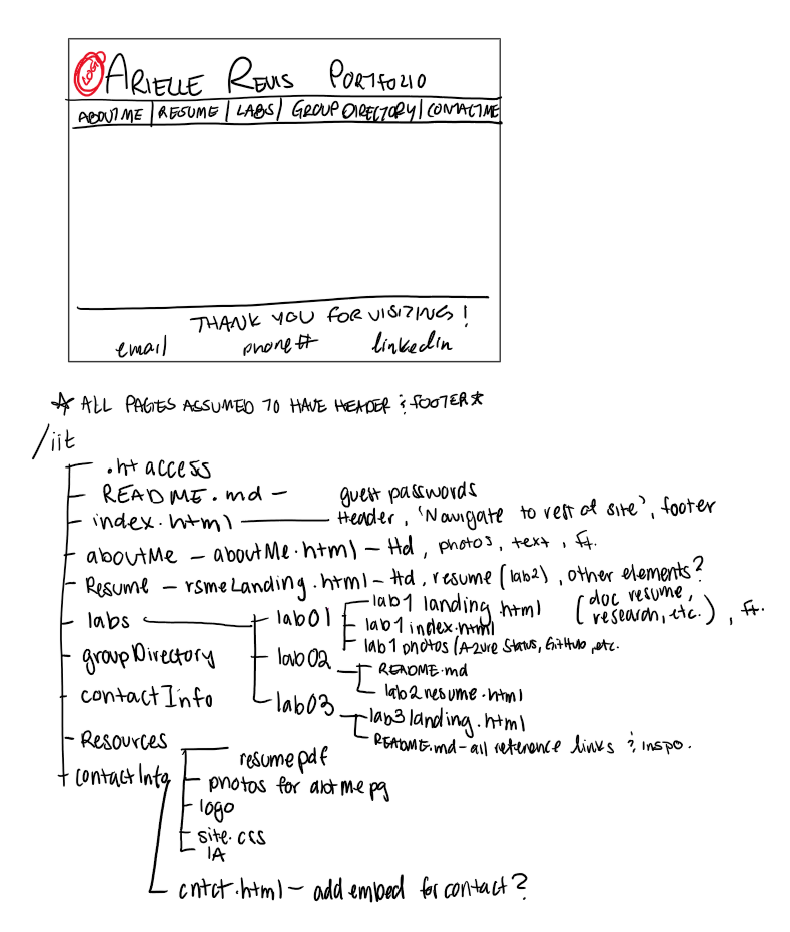 LOGO ARIELLE REVIS PORTFOLIO
ABOUT ME | RESUME | LABS | GROUP DIRECTORY | CONTACT ME
THANK YOU FOR VISITING!
email phone # linkedin
☆ ALL PAGES ASSUMED TO HAVE HEADER & FOOTER ☆
/iit
.htaccess
README.md - guest passwords
index.html - Header, 'Navigate to rest of site', footer
aboutMe - aboutMe.html - Hd, photos, text, ft.
Resume - rsmeLanding.html - Hd, resume (lab2), other elements?
(doc resume, research, etc.), ft.
labs
lab01
lab1 landing.html
lab1 index.html
lab1 photos (Azure Status, GitHub, etc.
groupDirectory
lab02
README.md
lab2resume.html
contactInfo
lab03
lab3landing.html
README.md - all reference links & inspo.
Resources
resume pdf
contactInfo
photos for abt me pg
logo
site.css
IA
cntct.html - add embed for contact?